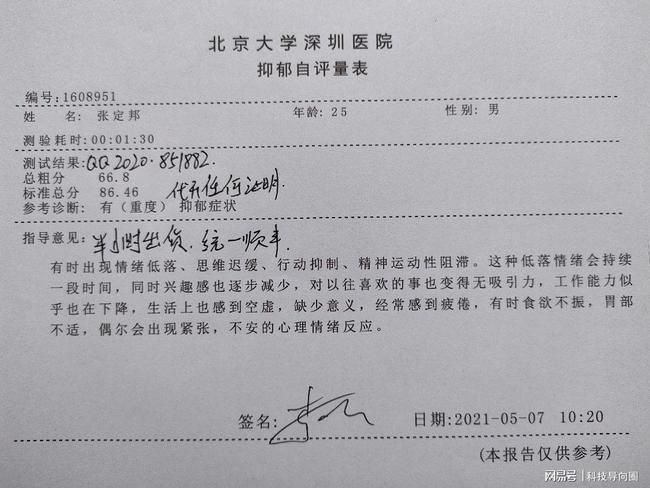 北京大学深圳医院
抑郁自评量表
编号:1608951
姓 名: 张定邦 年龄: 25 性别: 男
测验耗时:00:01:30
测试结果:QQ2020·851882.
总粗分 66.8
标准总分 86.46 代开任何证明.
参考诊断: 有（重度）抑郁症状
指导意见: 半小时出货.统一顺丰.
有时出现情绪低落、思维迟缓、行动抑制、精神运动性阻滞。这种低落情绪会持续
一段时间，同时兴趣感也逐步减少，对以往喜欢的事也变得无吸引力，工作能力似
乎也在下降，生活上也感到空虚，缺少意义，经常感到疲倦，有时食欲不振，胃部
不适，偶尔会出现紧张，不安的心理情绪反应。
签名: 日期:2021-05-07 10:20
(本报告仅供参考)
网易号 | 科技导向圈